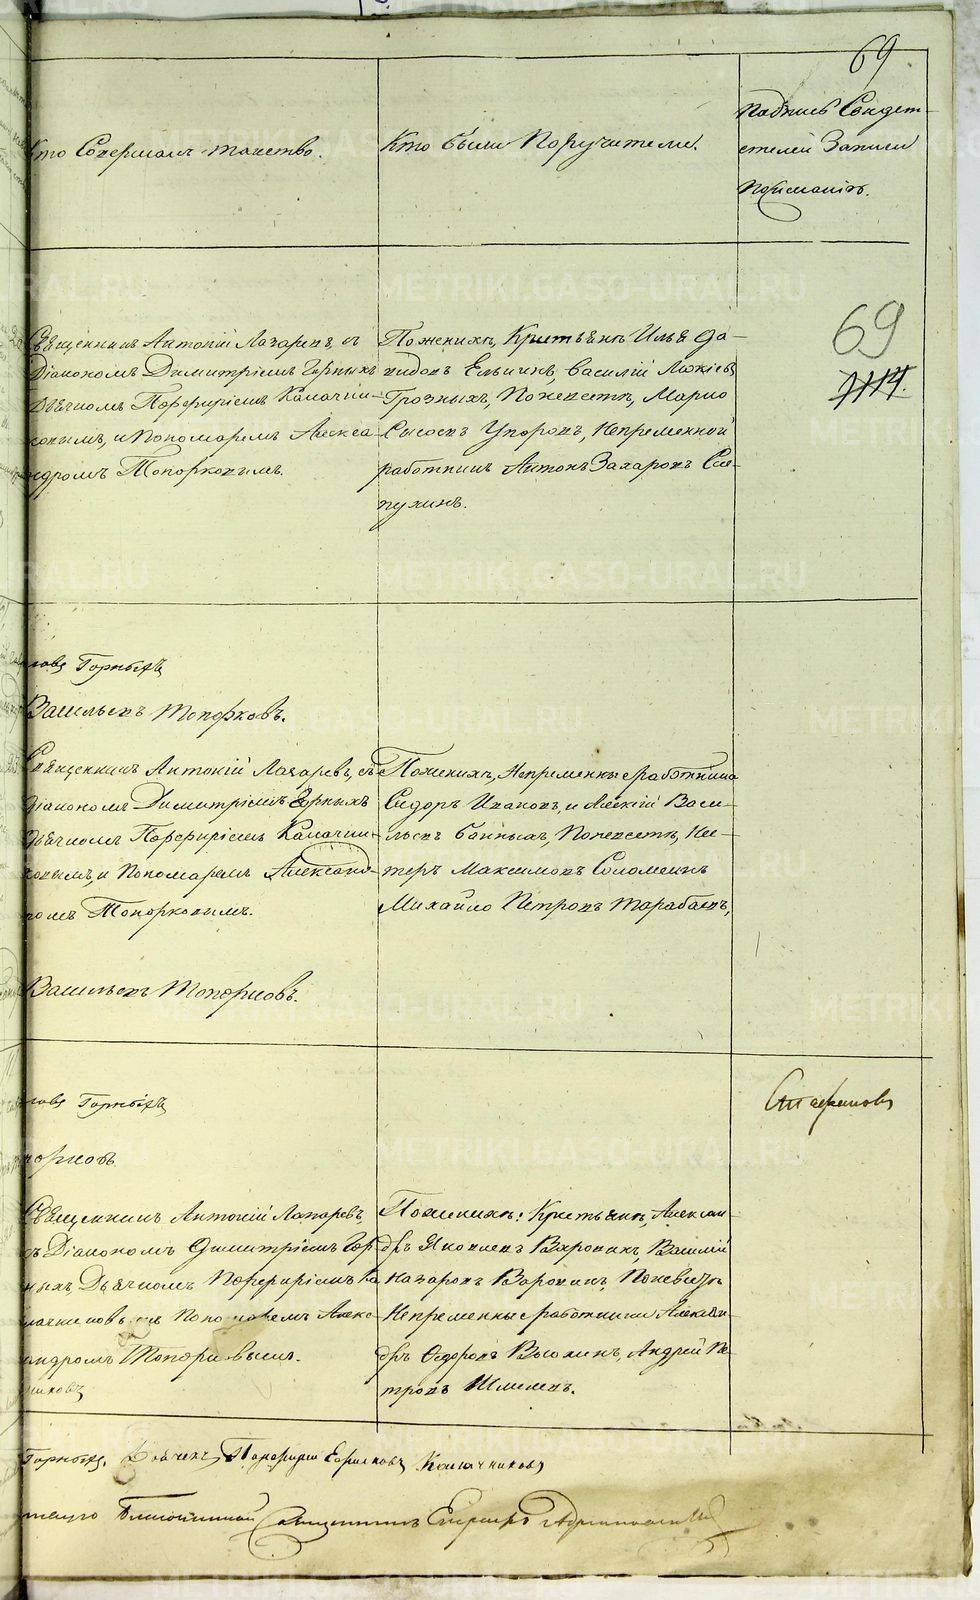 69
Кто Совершалъ таинство.
Кто были Поручители.
Подпись Свидет-
етелей Записи
По желанію.
69
Священникъ Антоній Лазаревъ, съ
Діакономъ Димитріемъ Горныхъ
Дьячкомъ Порфиріемъ Калачни-
ковымъ, и Пономаремъ Алекса-
ндромъ Топорковымъ.
Поженихѣ, Крестьяне Илья Да-
видовъ Елькинъ, Василий
Грозныхъ, Поневестѣ, Марко
Сысоевъ Упоровъ, Непременной
работникъ Антонъ Захаровъ Сле-
пухинъ.
Горныхъ
Васильевъ Топорковъ.
Священникъ Антоній Лазаревъ, съ
Діакономъ Димитріемъ Горныхъ
Дьячкомъ Порфиріемъ Калачни-
ковымъ, и Пономаремъ Александ-
ромъ Топорковымъ.
Поженихѣ, Непременные работники
Сидоръ Ивановъ, и Алексій Васи-
льевъ Банныхъ, Поневестѣ, Пе-
теръ Максимовъ Соломеинъ
Михайло Петровъ Тарабаевъ,
Васильевъ Топорковъ.
Горныхъ
Стафановъ
порковъ
Священникъ Антоній Лазаревъ,
съ Діакономъ Димитріемъ Гор-
ныхъ Дьячкомъ Порфиріемъ Ка-
лачниковымъ Пономаремъ Алекс-
андромъ Топорковымъ.
никовъ
Поженихѣ: Крестьяне, Алексан-
дръ Яковлевъ Воронинъ, Василій
Назаровъ Воронинъ, Поневестѣ
Непременные работники Алексан-
дръ Федоровъ Вьюхинъ, Андрей Пе-
тровъ Шмелевъ.
Горныхъ. Дьячекъ Порфирій Калачниковъ
METRIKI.GASO-URAL.RU